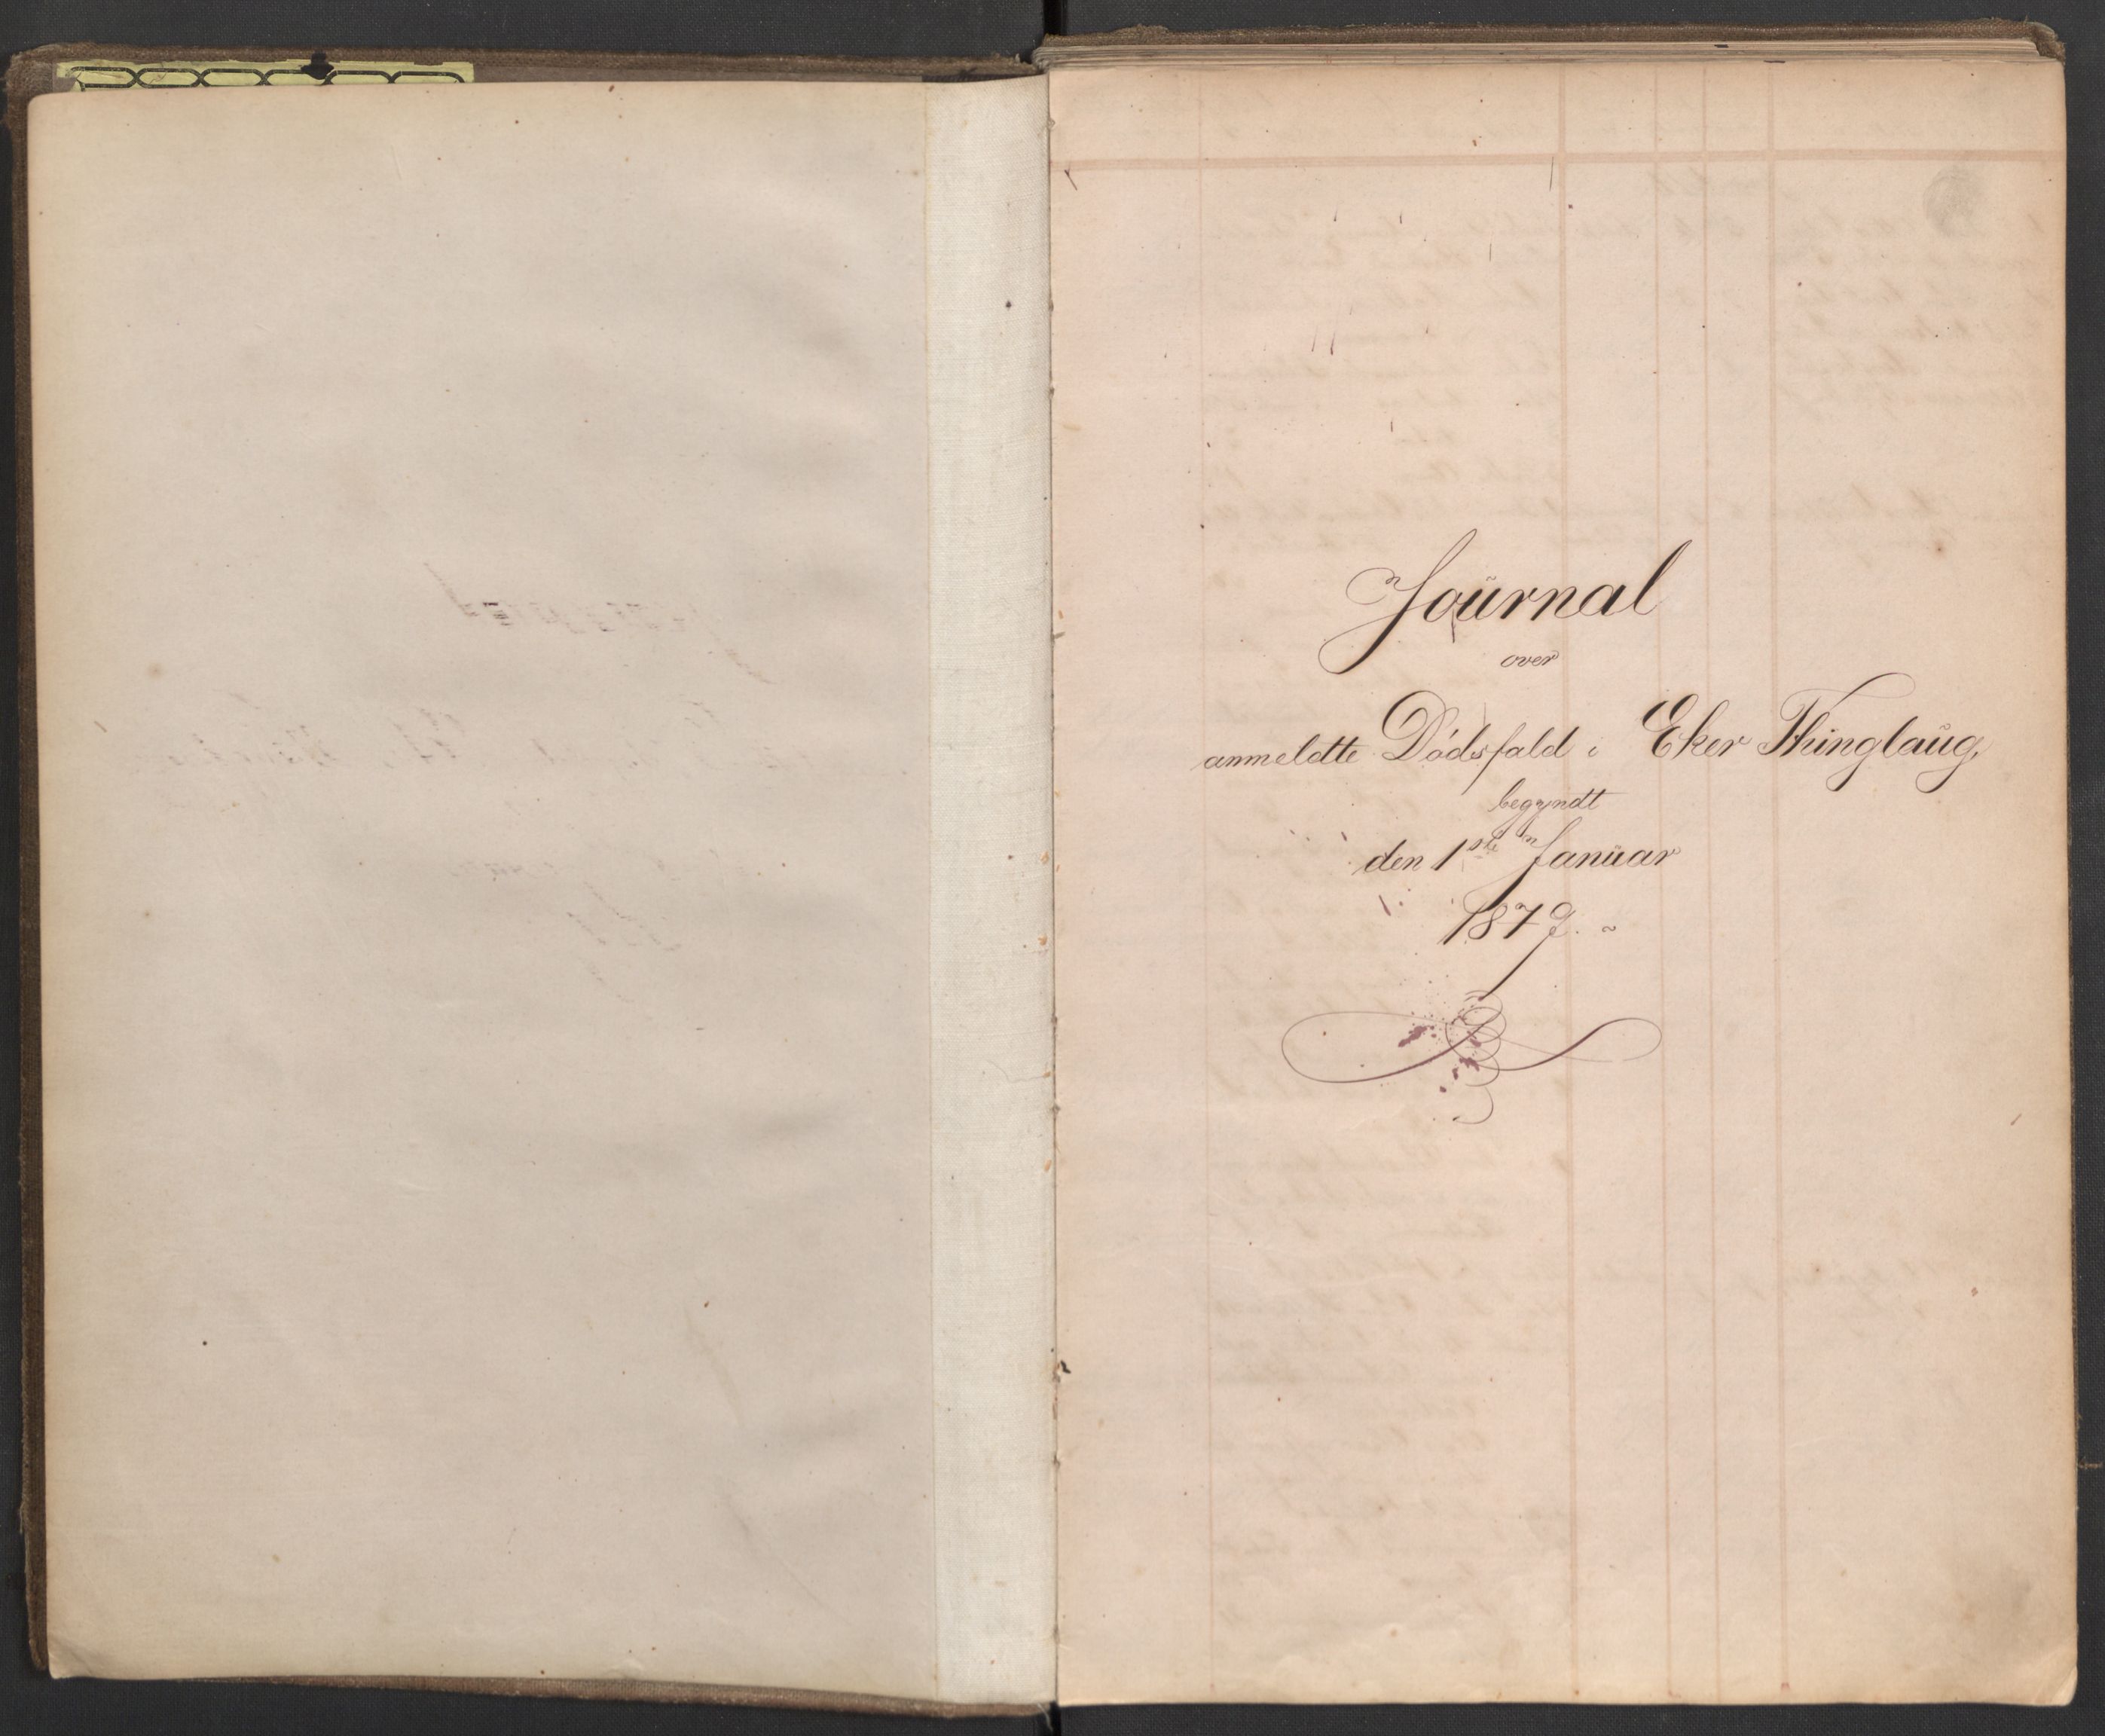 Journal
over
anmeldte Dödsfald i Eker Thinglaug,
begyndt
den 1ste Januar
1879.